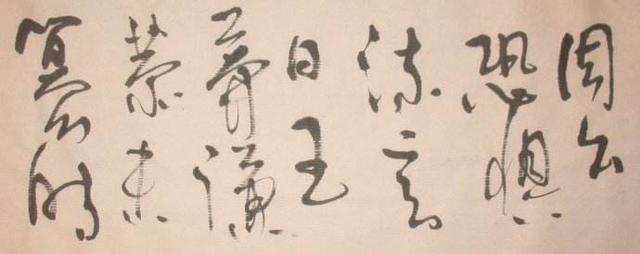 周公
恐懼
流言
日王
莽謙
恭未
篡時